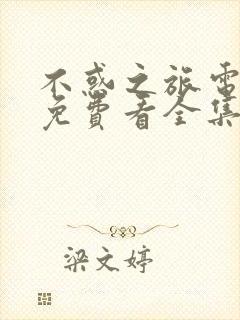 不惑之旅電
免費看全集
梁文婷